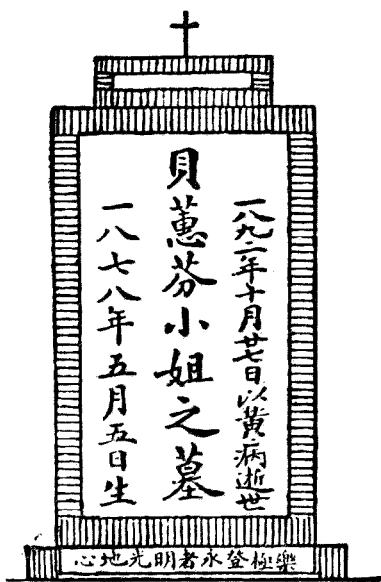 一八九二年十月廿七日以黃病逝世
貝蕙芬小姐之墓
一八七八年五月五日生
心地光明者永登極樂